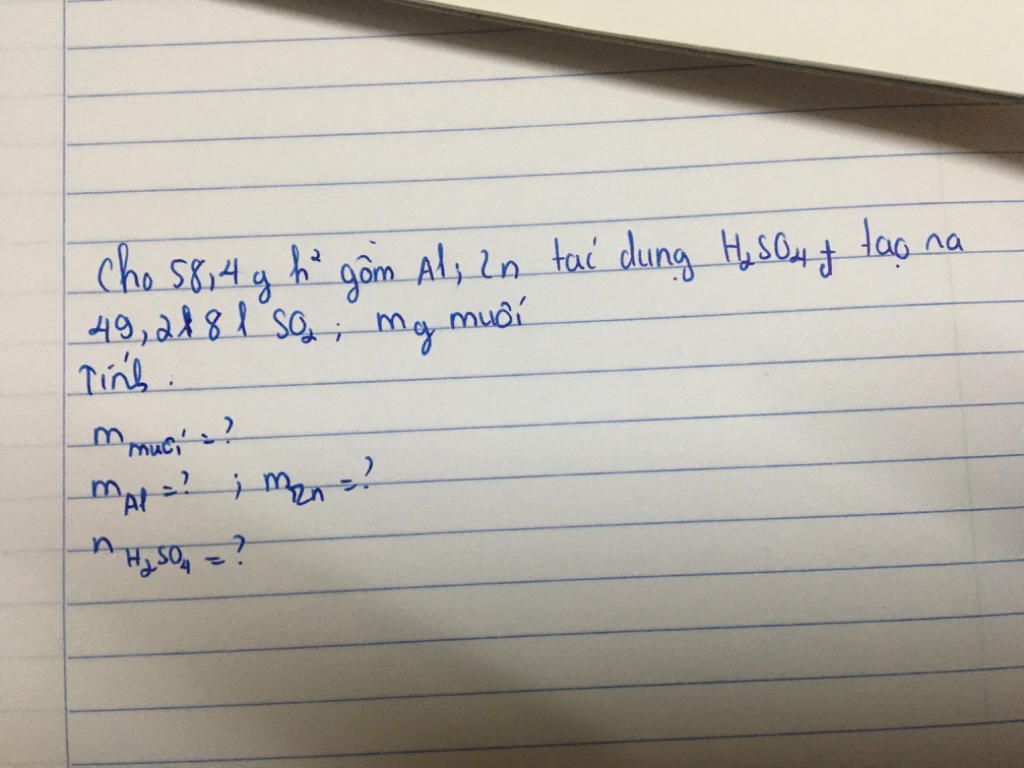 Cho 58,4 g h² gồm Al; Zn tác dụng H₂SO₄ đ tạo ra
49,288 l SO₂; mg muối
Tính.
m muối = ?
m Al = ? ; m Zn = ?
n H₂SO₄ = ?